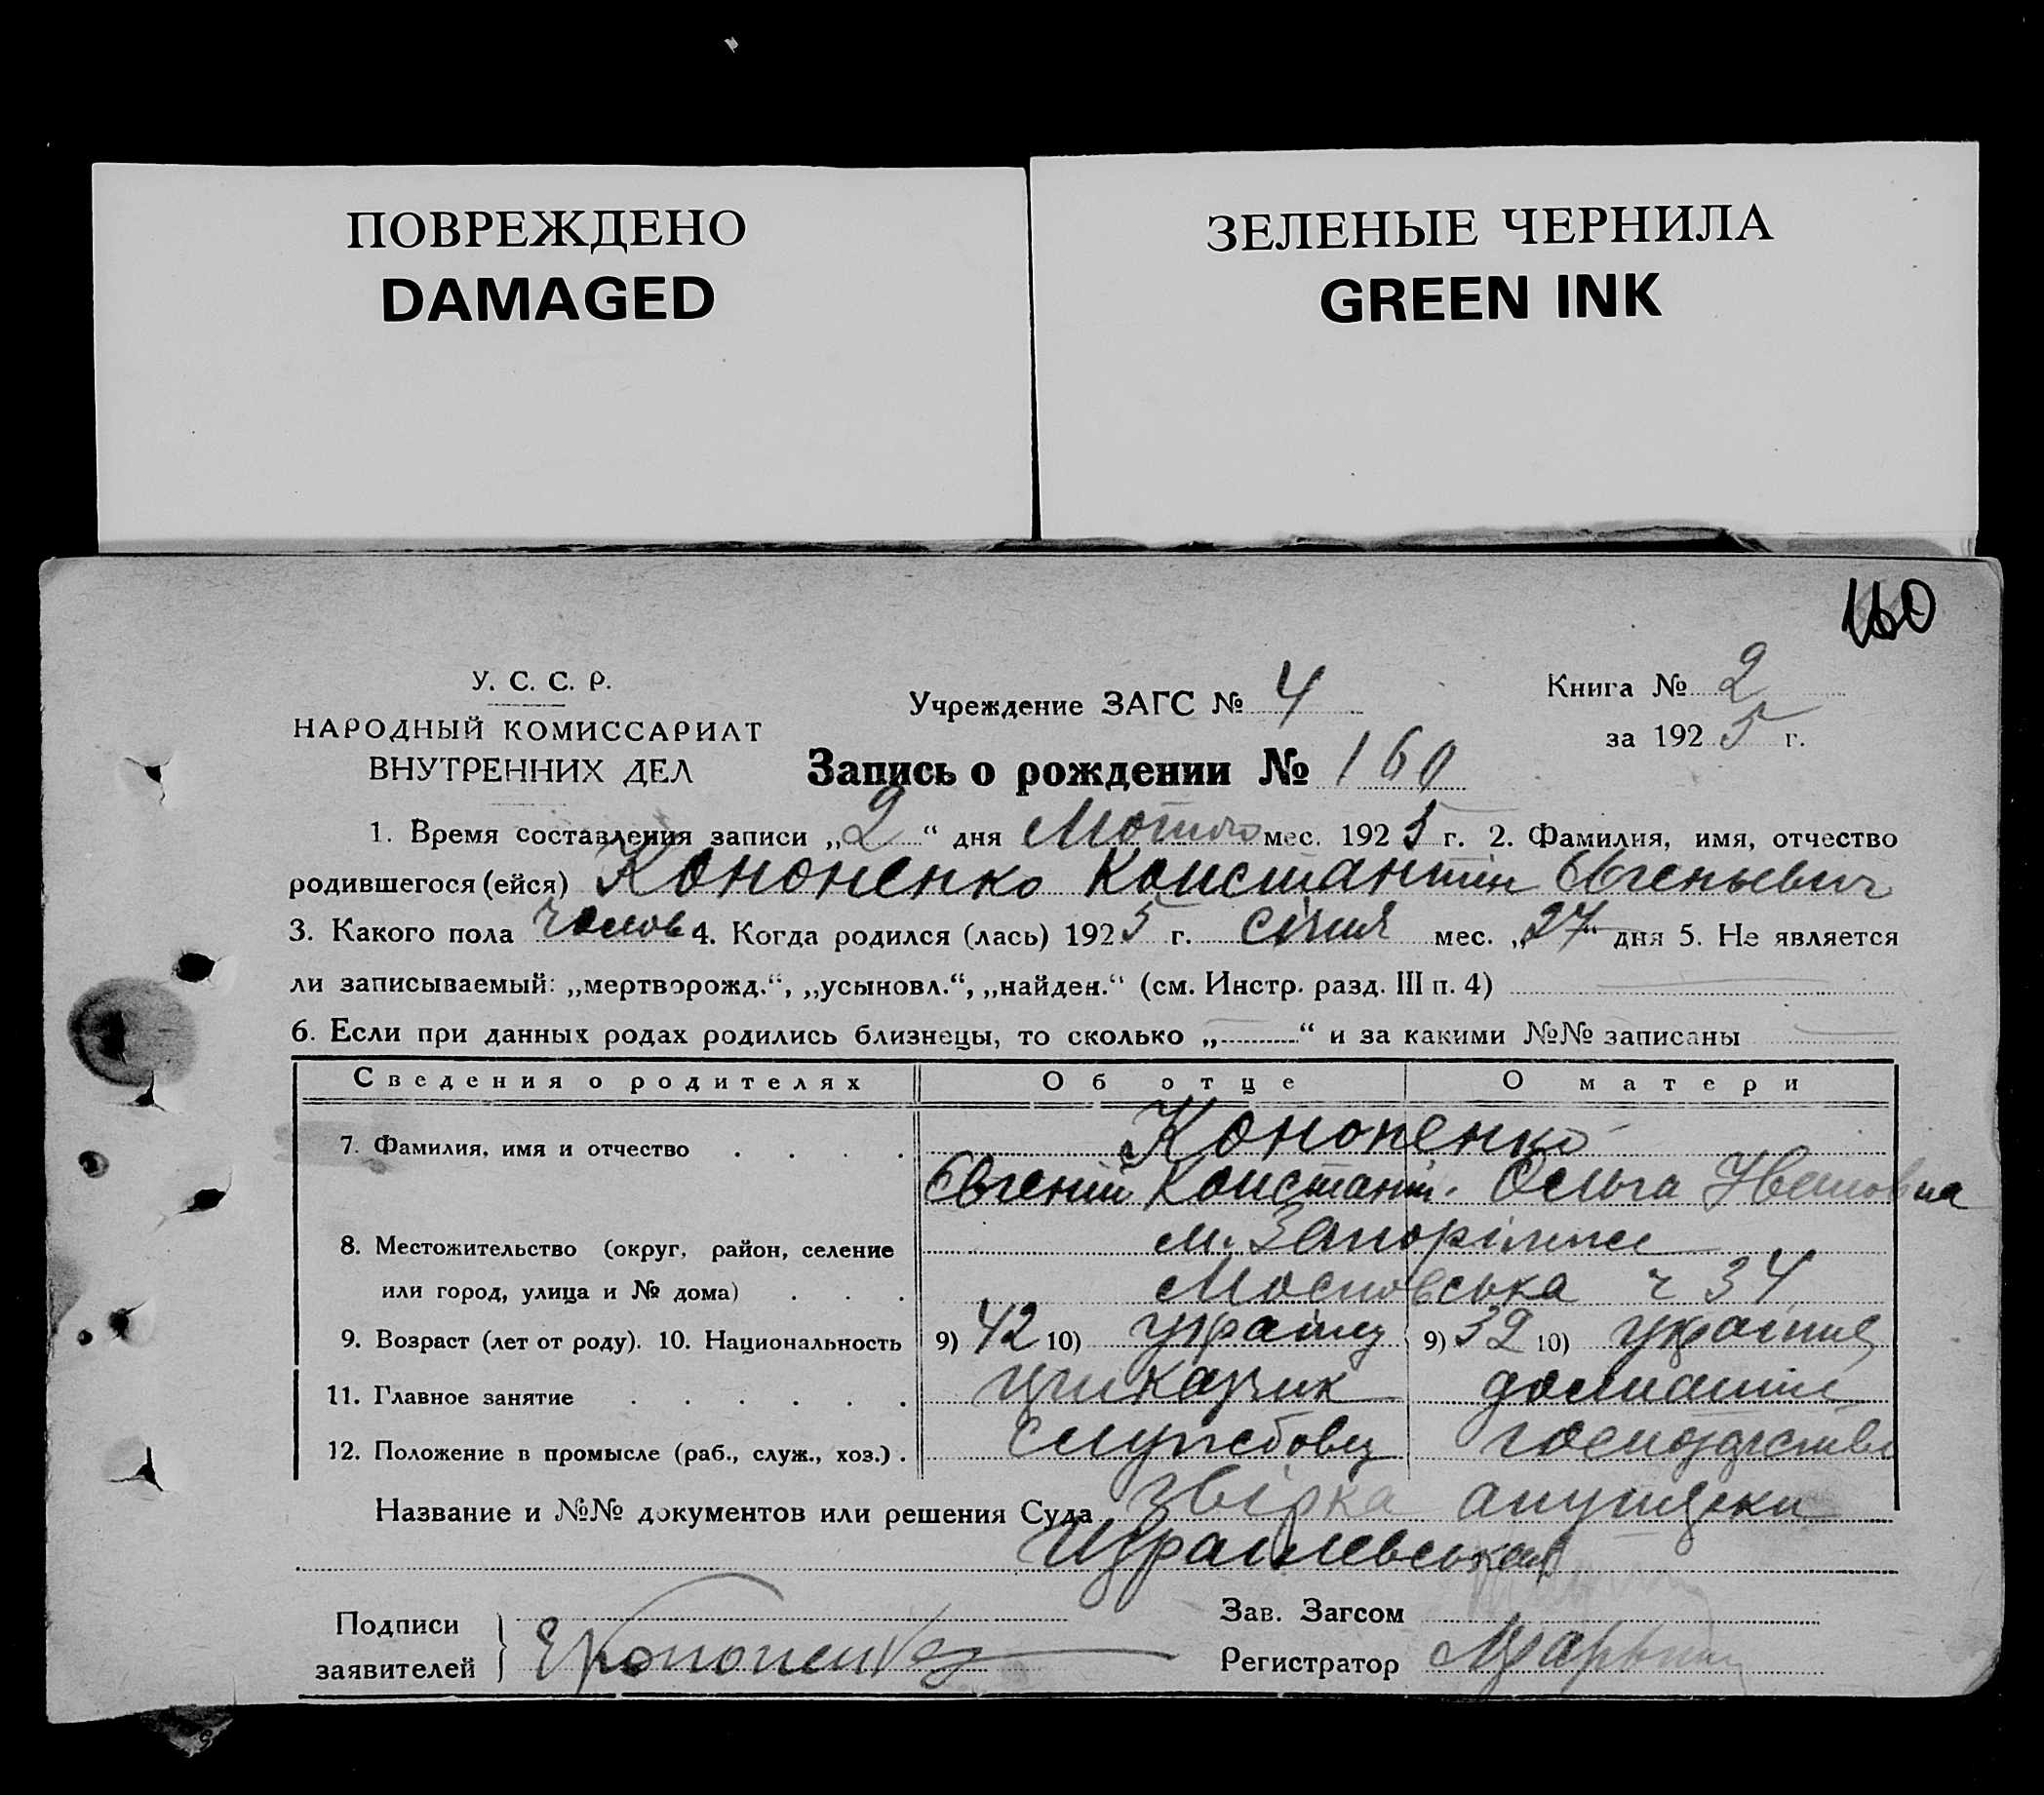 ПОВРЕЖДЕНО
DAMAGED
ЗЕЛЕНЫЕ ЧЕРНИЛА
GREEN INK
160
У. С. С. Р.
НАРОДНЫЙ КОМИССАРИАТ
ВНУТРЕННИХ ДЕЛ
Учреждение ЗАГС № 4
Книга № 2
за 1925 г.
Запись о рождении № 160
1. Время составления записи „2“ дня Лютого мес. 1925 г. 2. Фамилия, имя, отчество
родившегося (ейся) Кононенко Константін Євгеньевич
3. Какого пола чолов 4. Когда родился (лась) 1925 г. Січня мес. „27 дня 5. Не является
ли записываемый: „мертворожд.“, „усыновл.“, „найден.“ (см. Инстр. разд. III п. 4)
6. Если при данных родах родились близнецы, то сколько „ “ и за какими №№ записаны
Сведения о родителях Об отце О матери
7. Фамилия, имя и отчество Кононенко
Євгеній Констант. Ольга Ивановна
8. Местожительство (округ, район, селение м. Запоріжже
или город, улица и № дома) Московська ч 34
9. Возраст (лет от роду). 10. Национальность 9) 42 10) українц 9) 32 10) україн
11. Главное занятие домашнє
12. Положение в промысле (раб., служ., хоз.) Службовец господарство
Название и №№ документов или решения Суда звірка акушерки
Подписи
заявителей Е Кононенко
Зав. Загсом
Регистратор